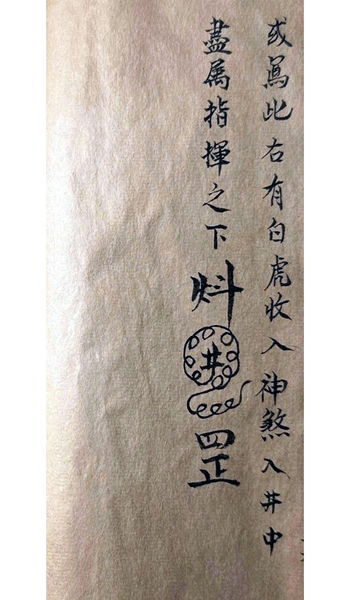 或寫此右有白虎收入神煞入井中
盡属指揮之下炓井罡